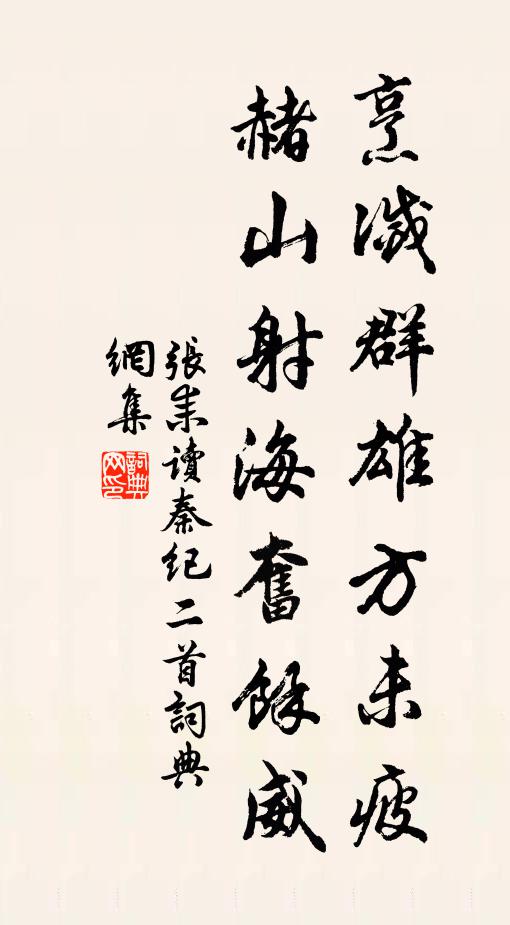 烹滅群雄方未疲
赭山射海奮餘威
張耒讀秦纪二首詞典
網集
詞典網印